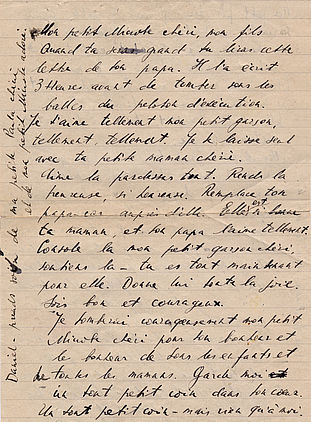 Mon petit Minoste chéri, mon fils
Quand tu seras grand tu liras cette
lettre de ton papa. Il l'a écrit
3 heures avant de tomber sous les
balles du peloton d'exécution.
Je t'aime tellement mon petit garçon,
tellement, tellement. Je te laisse seul
avec ta petite maman chérie.
Aime la par dessus tout. Rends la
heureuse, si heureuse. Remplace ton
papa auprès d'elle. Elle est si bonne
ta maman, et ton papa l'aime tellement.
Console la mon petit garçon chéri,
soutiens la - tu es tout maintenant
pour elle. Donne lui toute la joie.
Sois bon et courageux.
Je tomberai courageusement mon petit
Minoste chéri pour ton bonheur et
le bonheur de tous les enfants et
de toutes les mamans. Garde moi
un tout petit coin dans ton coeur.
Un tout petit coin - mais rien qu'à moi.
Daniel - prends soin de ma petite Paula chérie
et de mon petit Minoste adoré.